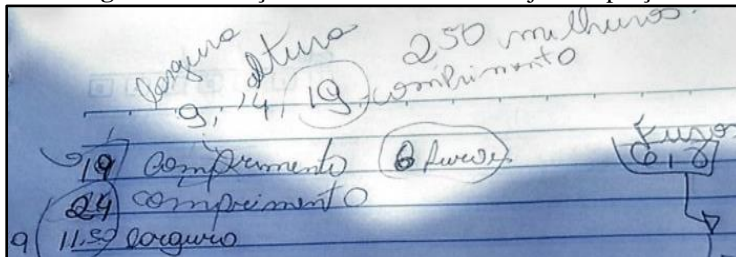 largura altura 250 milheiros.
9, 14, 19 comprimento
19 comprimento 6 furos Furos
6, 8
24 comprimento
9 11.50 largura